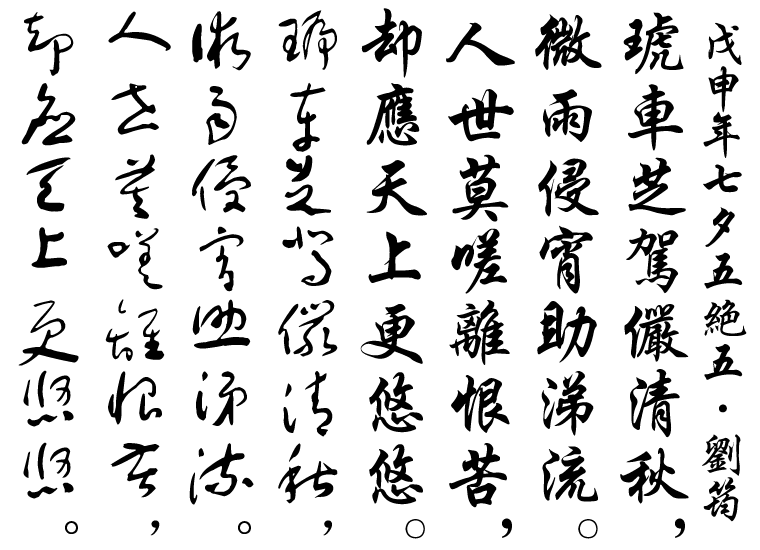 戊申年七夕五絕五·劉筠
琥車芝駕儼清秋，
微雨侵宵助涕流。
人世莫嗟離恨苦，
却應天上更悠悠。
琥車芝駕儼清秋，
微雨侵宵助涕流。
人世莫嗟離恨苦，
却應天上更悠悠。